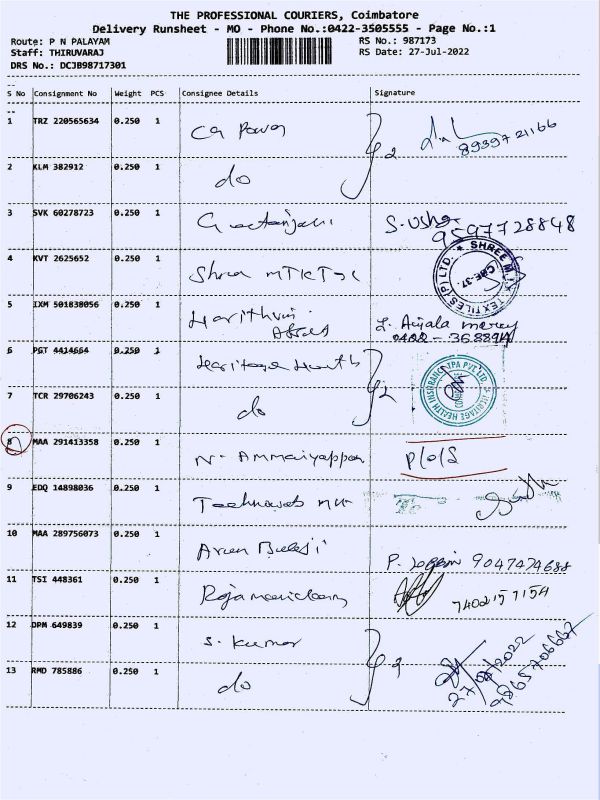 THE PROFESSIONAL COURIERS, Coimbatore
Delivery Runsheet - MO - Phone No.:0422-3505555 - Page No.:1
Route: P N PALAYAM RS No.: 987173
Staff: THIRUVARAJ RS Date: 27-Jul-2022
DRS No.: DCJB98717301
S No Consignment No Weight PCS Consignee Details Signature
1 TRZ 220565634 0.250 1 CG Power 2 8939721166
2 KLM 382912 0.250 1 do
3 SVK 60278723 0.250 1 Geetanjali S. Usha
9597728848
4 KVT 2625652 0.250 1 Shree SHREE TEXTILES (P) LTD. CBE-37.
5 IXM 501838056 0.250 1 L. Anjala mercy
0422 -
6 PGT 4414664 0.250 1 Heritage Health HERITAGE HEALTH INSURANCE TPA PVT LTD.
7 TCR 29706243 0.250 1 do
8 MAA 291413358 0.250 1 N. Ammaiyappan P/O/S
9 EDQ 14898036 0.250 1
10 MAA 289756073 0.250 1 Arun Balaji P. 9047474688
11 TSI 448361 0.250 1 Rajamanickam 7402157154
12 DPM 649839 0.250 1 S. Kumar
13 RMD 785886 0.250 1 do 27/07/2022 9865706667